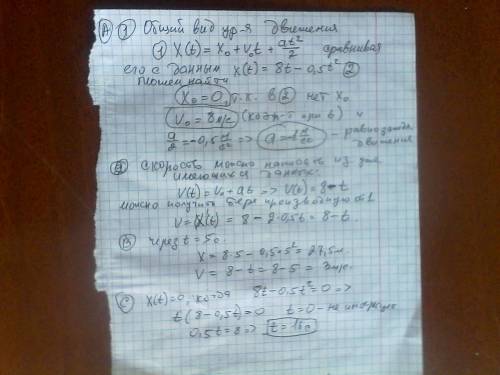 А) 1) Общий вид ур-я движения
① X(t) = X₀ + v₀t + at²/2 сравнивая
его с данным X(t) = 8t - 0,5t² ②
можем найти
X₀ = 0, т.к. в ② нет X₀
V₀ = 8 м/с (коэф-т при t) и
a/2 = -0,5 м/с² => a = -1 м/с² - равнозамедл.
движения
скорость можно написать из уже
имеющихся данных:
V(t) = V₀ + at => V(t) = 8 - t
можно получить беря производную от 1
V = X'(t) = 8 - 2·0,5t = 8 - t.
В) через t = 5с
X = 8·5 - 0,5·5² = 27,5м
V = 8 - t = 8 - 5 = 3м/с.
С) X(t) = 0, когда 8t - 0,5t² = 0 =>
t(8 - 0,5t) = 0 t = 0 - не интересует
0,5t = 8 => t = 16с